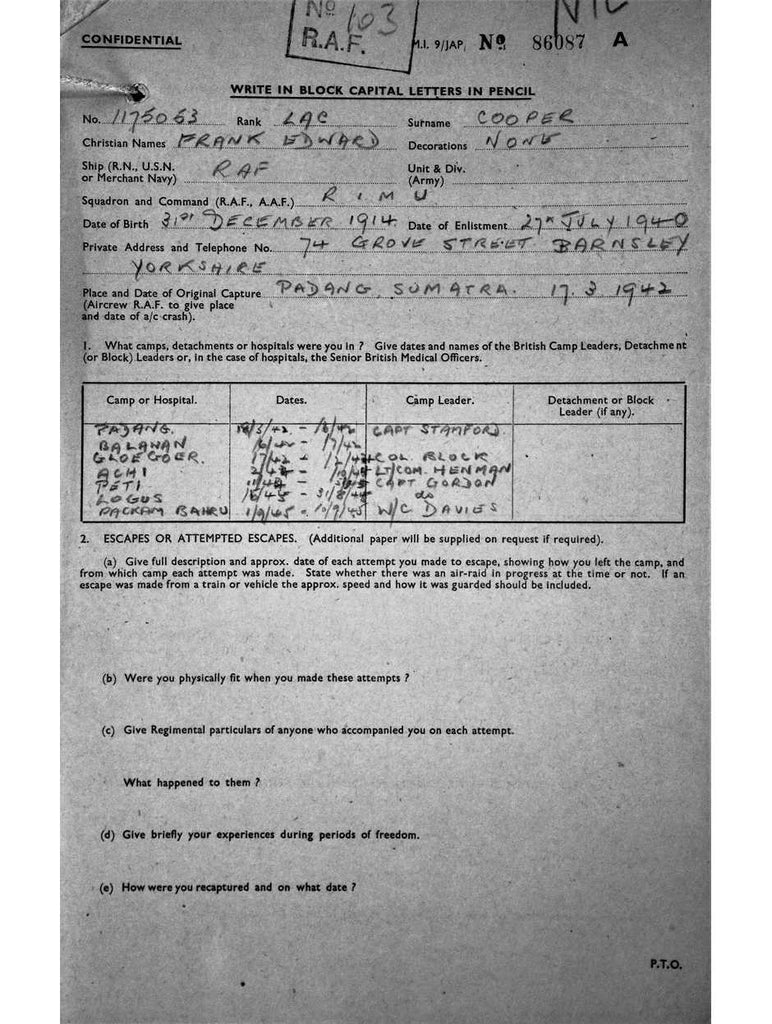 CONFIDENTIAL
No 103
R.A.F.
NIL
M.I. 9/JAP. No. 86087 A
WRITE IN BLOCK CAPITAL LETTERS IN PENCIL
No. 1175063 Rank LAC Surname COOPER
Christian Names FRANK EDWARD Decorations NONE
Ship (R.N., U.S.N. or Merchant Navy) RAF Unit & Div. (Army)
Squadron and Command (R.A.F., A.A.F.) R I M U
Date of Birth 31st DECEMBER 1914. Date of Enlistment 27th JULY 1940
Private Address and Telephone No. 74 GROVE STREET BARNSLEY
YORKSHIRE
Place and Date of Original Capture PADANG, SUMATRA. 17.3.1942
(Aircrew R.A.F. to give place
and date of a/c crash).
1. What camps, detachments or hospitals were you in ? Give dates and names of the British Camp Leaders, Detachment
(or Block) Leaders or, in the case of hospitals, the Senior British Medical Officers.
Camp or Hospital. Dates. Camp Leader. Detachment or Block
Leader (if any).
PADANG. /3/42 - /6/42 CAPT STAMFORD.
BALAWAN /6/42 - /7/42
GLOEGOER. 17/42 - COL. BLOCK
ACHI LT/COM. HENMAN
PETI CAPT GORDON
LOGUS - 31/8/45 do
PACKAM BAHRU 1/9/45 - 10/9/45 W/C DAVIES
2. ESCAPES OR ATTEMPTED ESCAPES. (Additional paper will be supplied on request if required).
(a) Give full description and approx. date of each attempt you made to escape, showing how you left the camp, and
from which camp each attempt was made. State whether there was an air-raid in progress at the time or not. If an
escape was made from a train or vehicle the approx. speed and how it was guarded should be included.
(b) Were you physically fit when you made these attempts ?
(c) Give Regimental particulars of anyone who accompanied you on each attempt.
What happened to them ?
(d) Give briefly your experiences during periods of freedom.
(e) How were you recaptured and on what date ?
P.T.O.